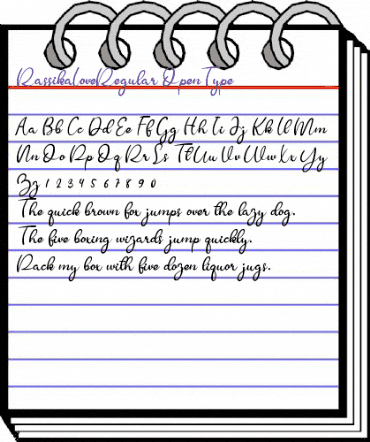 RassikaLoveRegular OpenType
Aa Bb Cc Dd Ee Ff Gg Hh Ii Jj Kk Ll Mm
Nn Oo Pp Qq Rr Ss Tt Uu Vv Ww Xx Yy
Zz 1 2 3 4 5 6 7 8 9 0
The quick brown fox jumps over the lazy dog.
The five boxing wizards jump quickly.
Pack my box with five dozen liquor jugs.